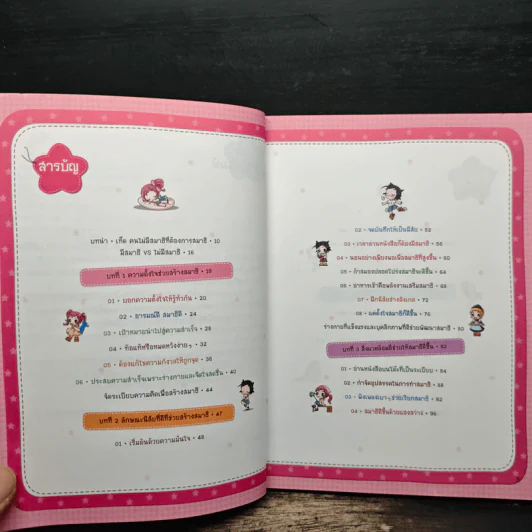 สารบัญ
บทนำ • เกิ๊ด คนไม่มีสมาธิที่ต้องการสมาธิ • 10
มีสมาธิ VS ไม่มีสมาธิ • 16
บทที่ 1 ความตั้งใจช่วยสร้างสมาธิ • 19
01 • บอกความตั้งใจให้รู้ทั่วกัน • 20
02 • อารมณ์ดี สมาธิดี • 24
03 • เป้าหมายนำไปสู่ความสำเร็จ • 28
04 • ท้อแท้หรือหมดหวังง่ายๆ • 32
05 • ต้องแก้ไขความกังวลให้ถูกจุด • 36
06 • ประสบความสำเร็จเพราะร่างกายและจิตใจสดชื่น • 40
จัดระเบียบความคิดเพื่อสร้างสมาธิ • 44
บทที่ 2 ลักษณะนิสัยที่ดีที่ช่วยสร้างสมาธิ • 47
01 • เริ่มต้นด้วยความมั่นใจ • 48
02 • จดบันทึกให้เป็นนิสัย • 52
03 • เวลาอ่านหนังสือก็ต้องมีสมาธิ • 56
04 • นอนอย่างเพียงพอเพื่อสมาธิที่สูงขึ้น • 60
05 • ถ้าสมองปลอดโปร่งสมาธิจะดีขึ้น • 64
06 • อาหารเช้าคือพลังงานเสริมสมาธิ • 68
07 • ฝึกนิสัยช่างสังเกต • 72
08 •
ร่างกายที่แข็งแรงและบุคลิกภาพที่ดีช่วยพัฒนาสมาธิ • 80
บทที่ 3 สิ่งแวดล้อมดีช่วยให้สมาธิดีขึ้น • 83
01 • อ่านหนังสือบนโต๊ะที่เป็นระเบียบ • 84
02 • กำจัดอุปสรรคในการทำสมาธิ • 88
03 • ฟังเพลงเบาๆ ช่วยเรียกสมาธิ • 92
04 • สมาธิดีขึ้นด้วยแสงสว่าง • 96